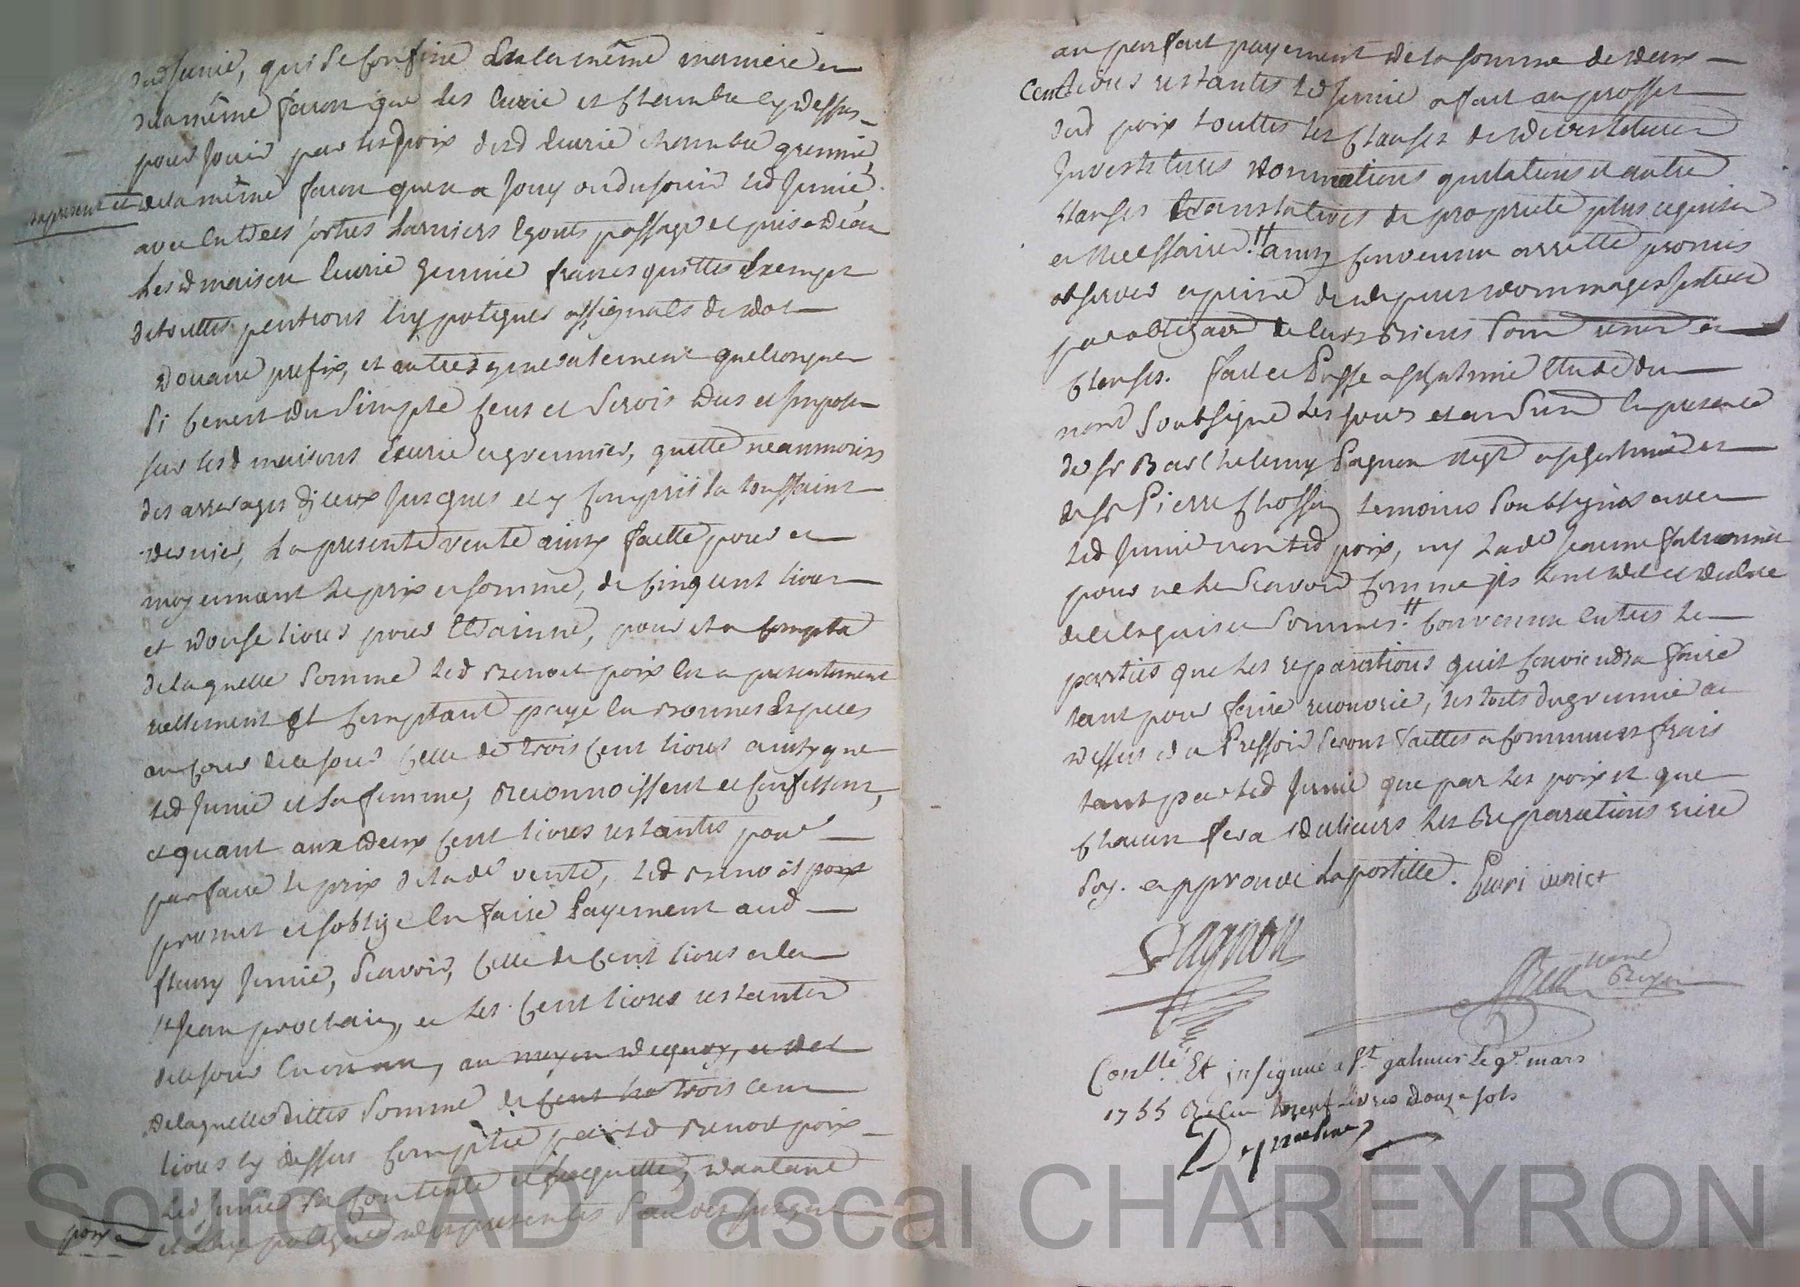 dud Junié, qui se confine de la même maniere et
de la même facon que les Ecurie et Chambre cy dessus
pour jouir par lesd poix desd Ecurie chambre grennié,
a present et
de la même facon qu'en a jouy ou du jouir led Junié
avec Entrées sorties Larmiers Egouts passage et prise d'eau
Lesd maison Ecurie Grennié francs quittes Exempt
de touttes pentions hypoteques assignals de dot
Douaire prefix, et autres generalement quelconques
si ce n'est du simple Cens et servis dus et imposés
sur lesd maisons Ecurie et grennier, quitte neanmoins
des arrerages d'iceux jusques et y compris la toussaint
dernier, La presente vente ainsy faitte pour et
moyennant le prix et somme, de Cinq cent livres
et Douse livres pour Etrainne, pour et a compte
de laquelle somme led Benoit poix en a presentement
reellement et comptant payé en bonnes Especes
au cours de ce jour Celle de trois Cent livres ainsy que
led Junié et sa femme, Reconnoissent et Confessent,
et quant aux Deux Cent livres restantes pour
parfaire le prix de lade vente, led Benoit poix
promet et s'oblige en faire Payement aud
fleury Junié, Scavoir, Celle de Cent livres a la
St Jean prochain, et les Cent livres restantes
de ce jour En un an, au moyen de quoy, et de
De laquelle dittes Somme de Cent trois Cent
livres cy dessus Comptée par led Benoit poix
led Junié s'a contente et l'acquitte, dautant
poix
et hypoteques des presentes sauver jusque
au parfait payement de la somme de Deux
Cent livres restantes led Junié a fait au proffit
dud poix touttes les Clauses de devestiture
Investitures nominations quitations et autre
Clauses translatives de proprieté plus requise
et Necessaire. ainsy convenu arretté promis
observer a peine de depens dommages Interest
par obligaon de leurs Biens soum renon et
Clauses. fait et Passé a Etude du
nore Soubsigné les jour et an Susd En presence
de sr Barthelemy Pagnon Negt a et
de sr Pierre Chossy temoins Soubsignés avec
led Junié non led poix, ny lade jeanne
pour ne le scavoir comme ils l'ont dit et declaré
de ce Enquis et Sommés. Convenu Entre les
parties que les reparations qu'il conviendra faire
tant pour faire recouvrir, les toits du grennié au
dessus du Pressoir seront faittes a communs frais
tant par led Junié que par les poix et que
Chacun fera D'alieurs les Reparations rière
soy. et approuvé La postille. fleuri iuniet
Pagnon
Conllé Et insignué a St galmier Le 9e mars
1755 Reçu neuf Livres Douze sols